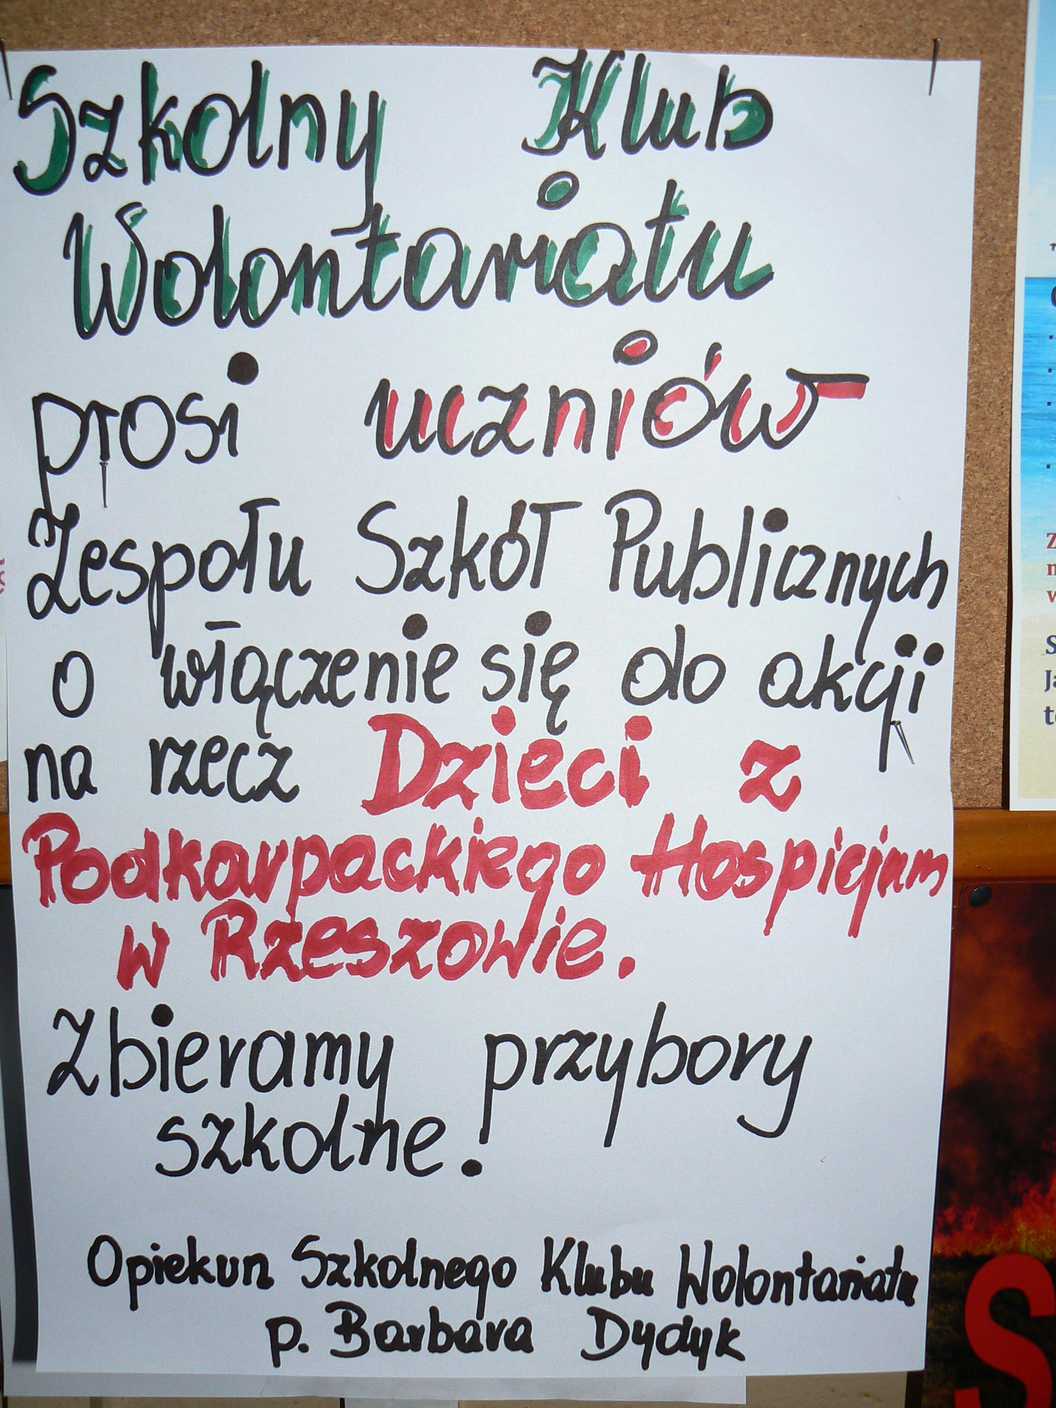 Szkolny Klub
Wolontariatu
prosi uczniów
Zespołu Szkół Publicznych
o włączenie się do akcji
na rzecz Dzieci z
Podkarpackiego Hospicjum
w Rzeszowie.
Zbieramy przybory
szkolne.
Opiekun Szkolnego Klubu Wolontariatu
p. Barbara Dydyk